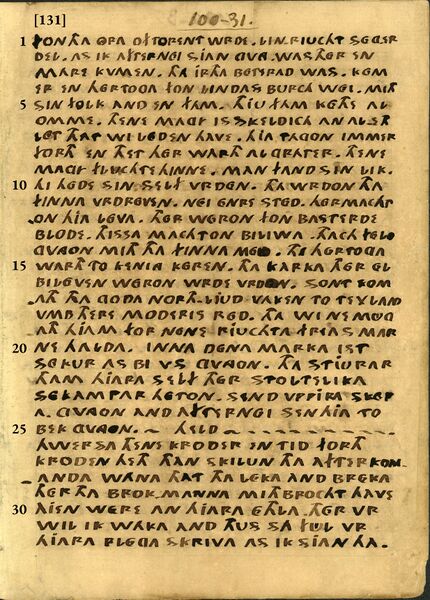 [131] 100-31.
1 FON THA GRA OFTORENT WRDE. LIN.RIUCHT SEGER
DEL. AS IK AFTERNEI SIAN HAVA. WAS THER EN
MARE KVMEN. THA IRTHA BEFERAD WAS. KEM
ER EN HERTOGA FON LINDAS BURCH WEI. MITH
5 SIN FOLK AND EN FAM. THIU FAM KETHE AL
OMME. THENE MAGI IS SKELDICH AN AL ET
LET THAT WI LEDEN HAVE. HIA TAGON IMMER
FORTH EN THET HER WARTH AL GRATER. THENE
MAGI FLUCHTE HINNE. MAN FAND SIN LIK.
10 HI HEDE SIN SELF VRDEN. THA WRDON THA
FINNA VRDREVEN. NEI ENRE STED. HER MACHT
ON HIA LEVA. THER WERON FON BASTERDE
BLODE. THISSA MACHTON BILIWA. THACH FELO
GVNGON MITH THA FINNA MEI. THI HERTOGA
15 WARTH TO KENIG KEREN. THA KARKA THER EL
BILEVEN WERON WRDE VRDEN. SONT KOM
ATH THA GODA NORTH.LIUD VAKEN TO TEXLAND
VMB THERE MODERIS RED. THA WI NE MVG
ATH HIAM FOR NENE RIUCHTA FRIAS MAR
20 NE HALDA. INNA DENA MARKA IST
SEKUR AS BI VS GVNGON. THA STIURAR
THAM HIARA SELF THER STOLTELIKA
SEKAMPAR HETON. SEND VPPIRA SKEP
A. GVNGON AND AFTERNEI SEN HIA TO
25 BEK GVNGON. ~ HELD ~
HWERSA THENE KRODER EN TID FORTH
KRODEN HETH THAN SKILUN THA AFTERKOM-
ANDA WANA THAT THA LEKA AND BREKA
THER THA BROK.MANNA MITH BROCHT HAVE
30 AIEN WERE AN HIARA ETHLA. THER VR
WIL IK WAKA AND THUS SA FUL VR
HIARA PLEGA SKRIVA AS IK SIAN HA.